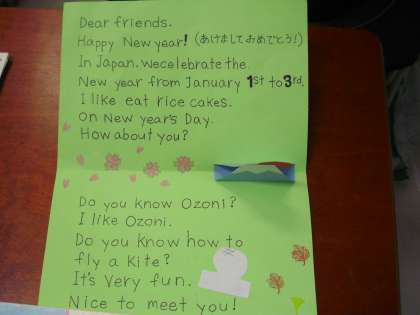 Dear friends.
Happy New year! (あけましておめでとう!)
In Japan. we celebrate the.
New year from January 1st to 3rd.
I like eat rice cakes.
on New year's Day.
How about you?
Do you know Ozoni?
I like Ozoni.
Do you know how to
fly a kite?
It's very fun.
Nice to meet you!